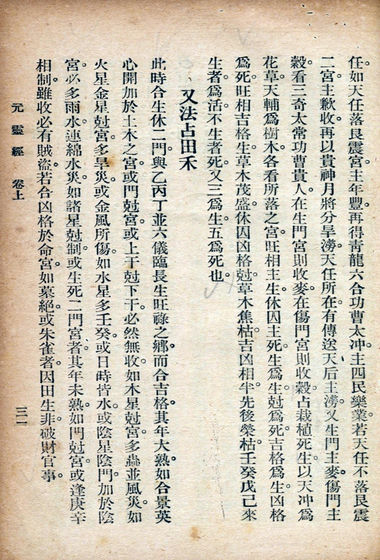 任如天任落艮震宮主年豐再得青龍六合功曹太冲主四民樂業若天任不落艮震
二宮主歉收再以貴神月將分旱澇天任所在有傳送天后主澇又生門主麥傷門主
穀看三奇太常功曹貴人在生門宮則收麥在傷門宮則收穀占栽植死生以天冲為
花草天輔為樹木各看所落之宮旺相主生休囚主死生為生尅為死吉格為生凶格
為死旺相吉格生草木茂盛休囚凶格尅草木焦枯吉凶相半先後榮枯壬癸戊己來
生者為活不生者死又三為生五為死也
又法占田禾
此時合生休二門與乙丙丁並六儀臨長生旺祿之鄉而合吉格其年大熟如合景英
心開加於土木之宮或門尅宮或上干尅下干必然無收如木星尅宮多蟲並風災如
火星金星尅宮多旱災或金風所傷如水星多壬癸或日時皆水或陰星陰門加於陰
宮必多雨水連綿水災如諸星尅制或生死二門宮者其年未熟如門尅宮或逢庚辛
相制雖收必有賊盜若合凶格於命宮如墓絕或朱雀者因田生非破財官事
元靈經 卷上
三一